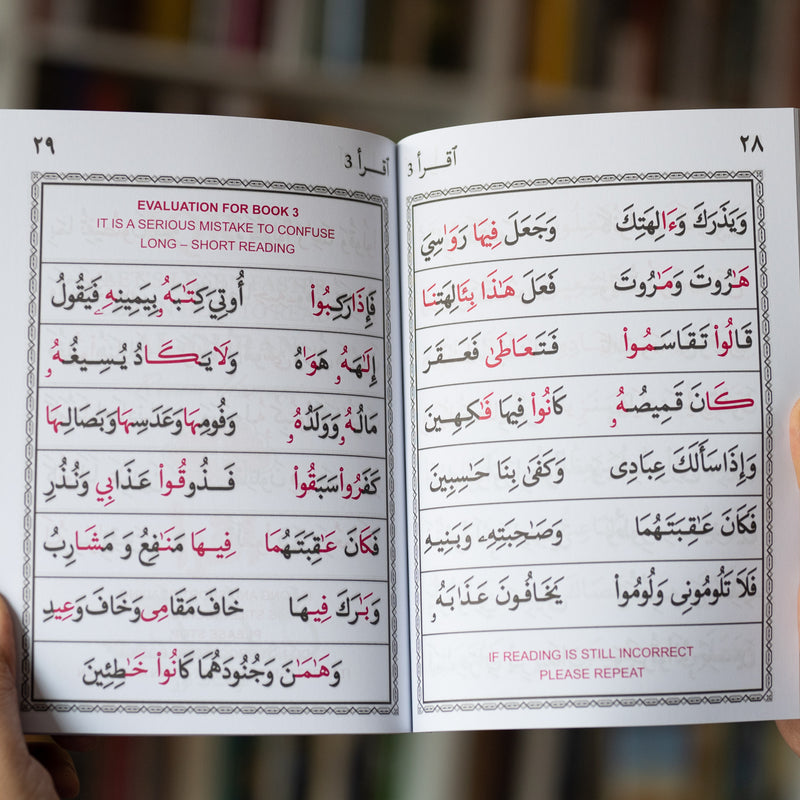 ٢٨
اقرأ 3
وَيَذَرَكَ وَءَالِهَتَكَ وَجَعَلَ فِيهَا رَوَاسِيَ
هَٰرُوتَ وَمَٰرُوتَ فَعَلَ هَٰذَا بِـَٔالِهَتِنَا
قَالُوا۟ تَقَاسَمُوا۟ فَتَعَاطَىٰ فَعَقَرَ
كَانَ قَمِيصُهُۥ كَانُوا۟ فِيهَا فَٰكِهِينَ
وَإِذَا سَأَلَكَ عِبَادِى وَكَفَىٰ بِنَا حَٰسِبِينَ
فَكَانَ عَٰقِبَتَهُمَا وَصَٰحِبَتِهِۦ وَبَنِيهِ
فَلَا تَلُومُونِى وَلُومُوا۟ يَخَافُونَ عَذَابَهُۥ
IF READING IS STILL INCORRECT
PLEASE REPEAT
٢٩
اقرأ 3
EVALUATION FOR BOOK 3
IT IS A SERIOUS MISTAKE TO CONFUSE
LONG – SHORT READING
فَإِذَا رَكِبُوا۟ أُوتِيَ كِتَٰبَهُۥ بِيَمِينِهِۦ فَيَقُولُ
إِلَٰهَهُۥ هَوَاهُ وَلَا يَكَادُ يُسِيغُهُۥ
مَالُهُۥ وَوَلَدُهُۥ وَفُومِهَا وَعَدَسِهَا وَبَصَلِهَا
كَفَرُوا۟ سَبَقُوا۟ فَذُوقُوا۟ عَذَابِي وَنُذُرِ
فَكَانَ عَٰقِبَتَهُمَا فِيهَا مَنَٰفِعُ وَ مَشَارِبُ
وَبَٰرَكَ فِيهَا خَافَ مَقَامِى وَخَافَ وَعِيدِ
وَهَٰمَٰنَ وَجُنُودَهُمَا كَانُوا۟ خَٰطِئِينَ